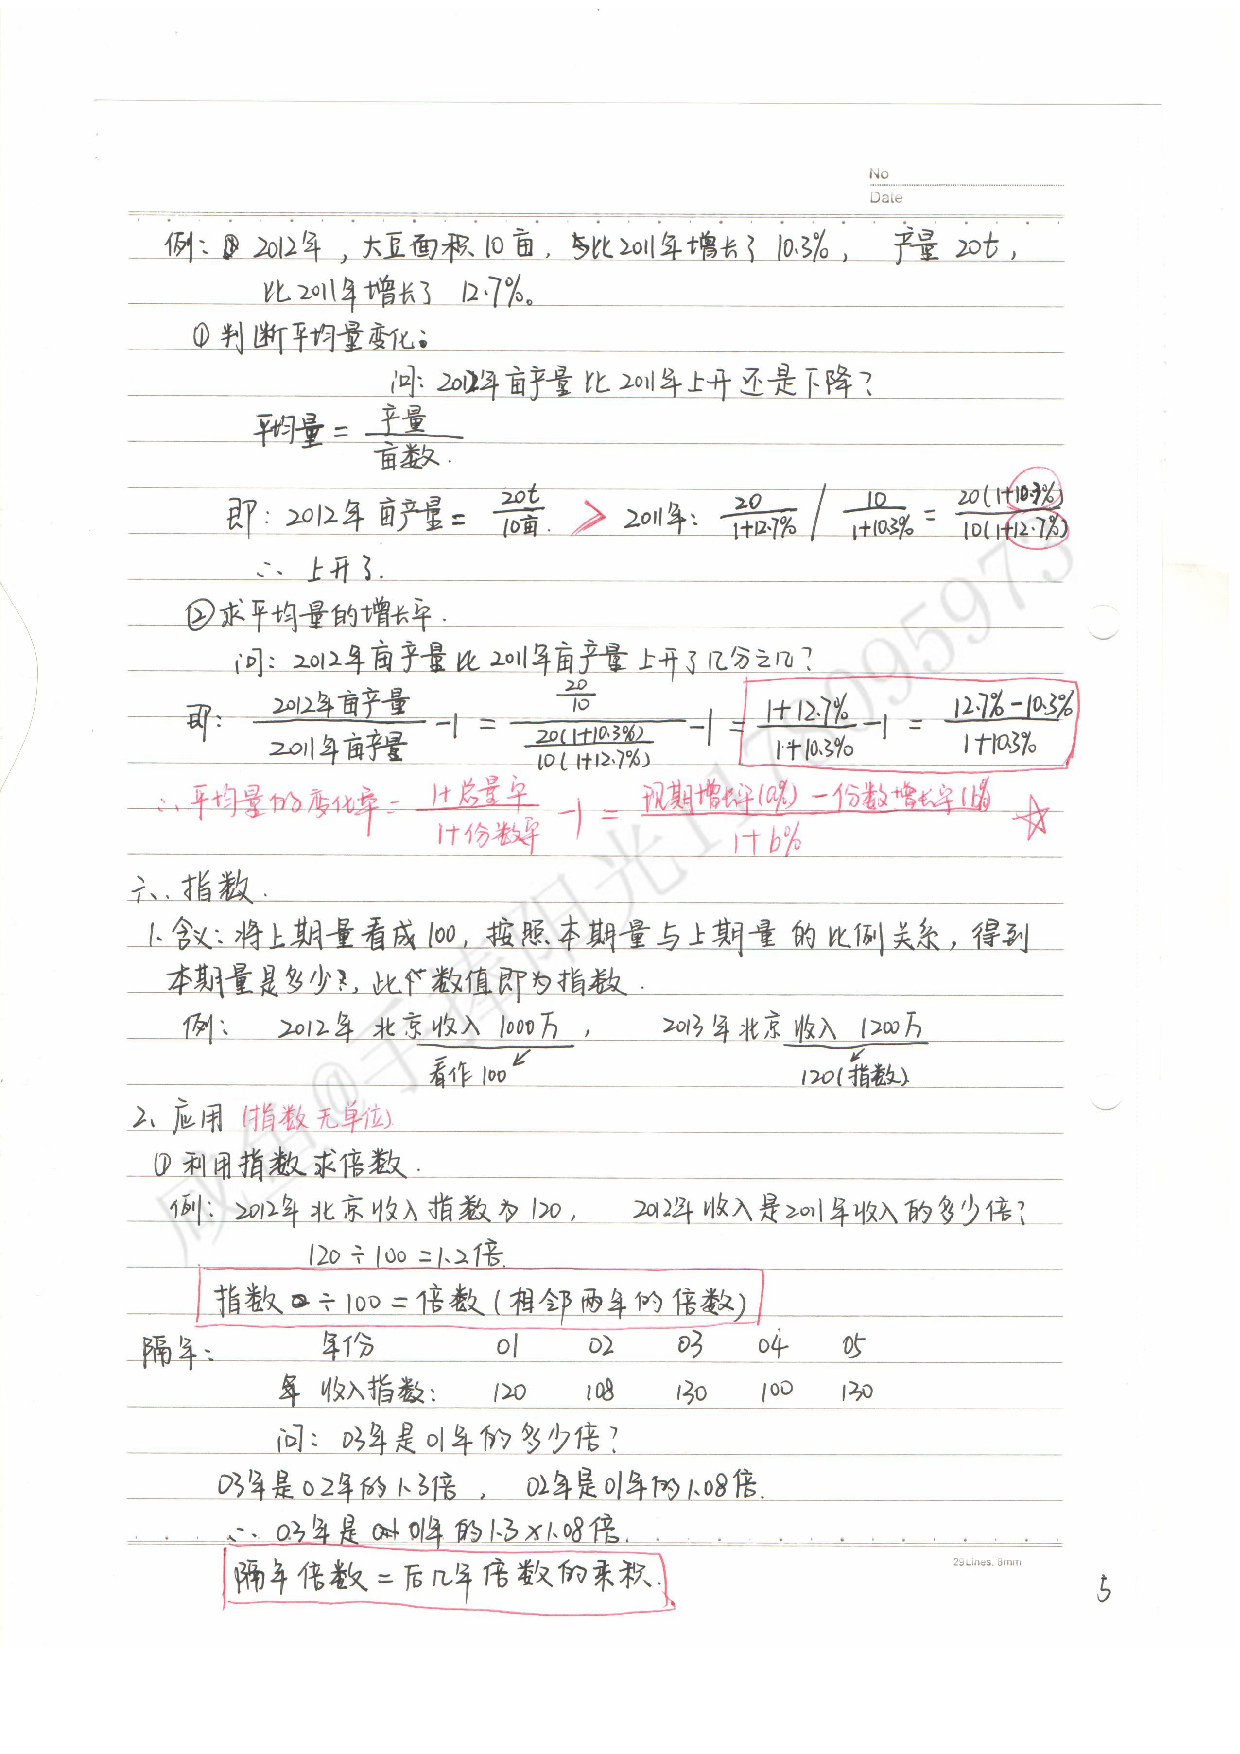 No
Date
例: 2012年，大豆面积10亩，比2011年增长了10.3%， 产量20t，
比2011年增长了 12.7%。
①判断平均量变化:
问: 2012年亩产量比2011年上升还是下降？
平均量 = 产量/亩数.
即: 2012年亩产量 = 20t/10亩. > 2011年: 20/(1+12.7%) / 10/(1+10.3%) = 20(1+10.3%)/10(1+12.7%)
∴ 上升了.
②求平均量的增长率.
问: 2012年亩产量比2011年亩产量上升了几分之几？
即: 2012年亩产量/2011年亩产量 -1 = (20/10)/(20(1+10.3%)/10(1+12.7%)) -1 = (1+12.7%)/(1+10.3%) -1 = (12.7%-10.3%)/(1+10.3%)
∴平均量的变化率 = (1+总量率)/(1+份数率) -1 = (现期增长率(a%) - 份数增长率(b%))/(1+b%) ☆
六、指数.
1. 含义: 将上期量看成100，按照本期量与上期量的比例关系，得到
本期量是多少?，此个数值即为指数.
例: 2012年北京收入1000万， 2013年北京收入1200万
看作100 120(指数)
2、应用(指数无单位)
①利用指数求倍数.
例: 2012年北京收入指数为120， 2012年收入是2011年收入的多少倍？
120÷100=1.2倍.
指数÷100=倍数(相邻两年的倍数)
隔年: 年份 01 02 03 04 05
年收入指数: 120 108 130 100 130
问: 03年是01年的多少倍？
03年是02年的1.3倍， 02年是01年的1.08倍.
∴ 03年是01年的1.3×1.08倍.
隔年倍数=后几年倍数的乘积.
29Lines, 8mm
5
咸鱼@手捧阳光1178095973